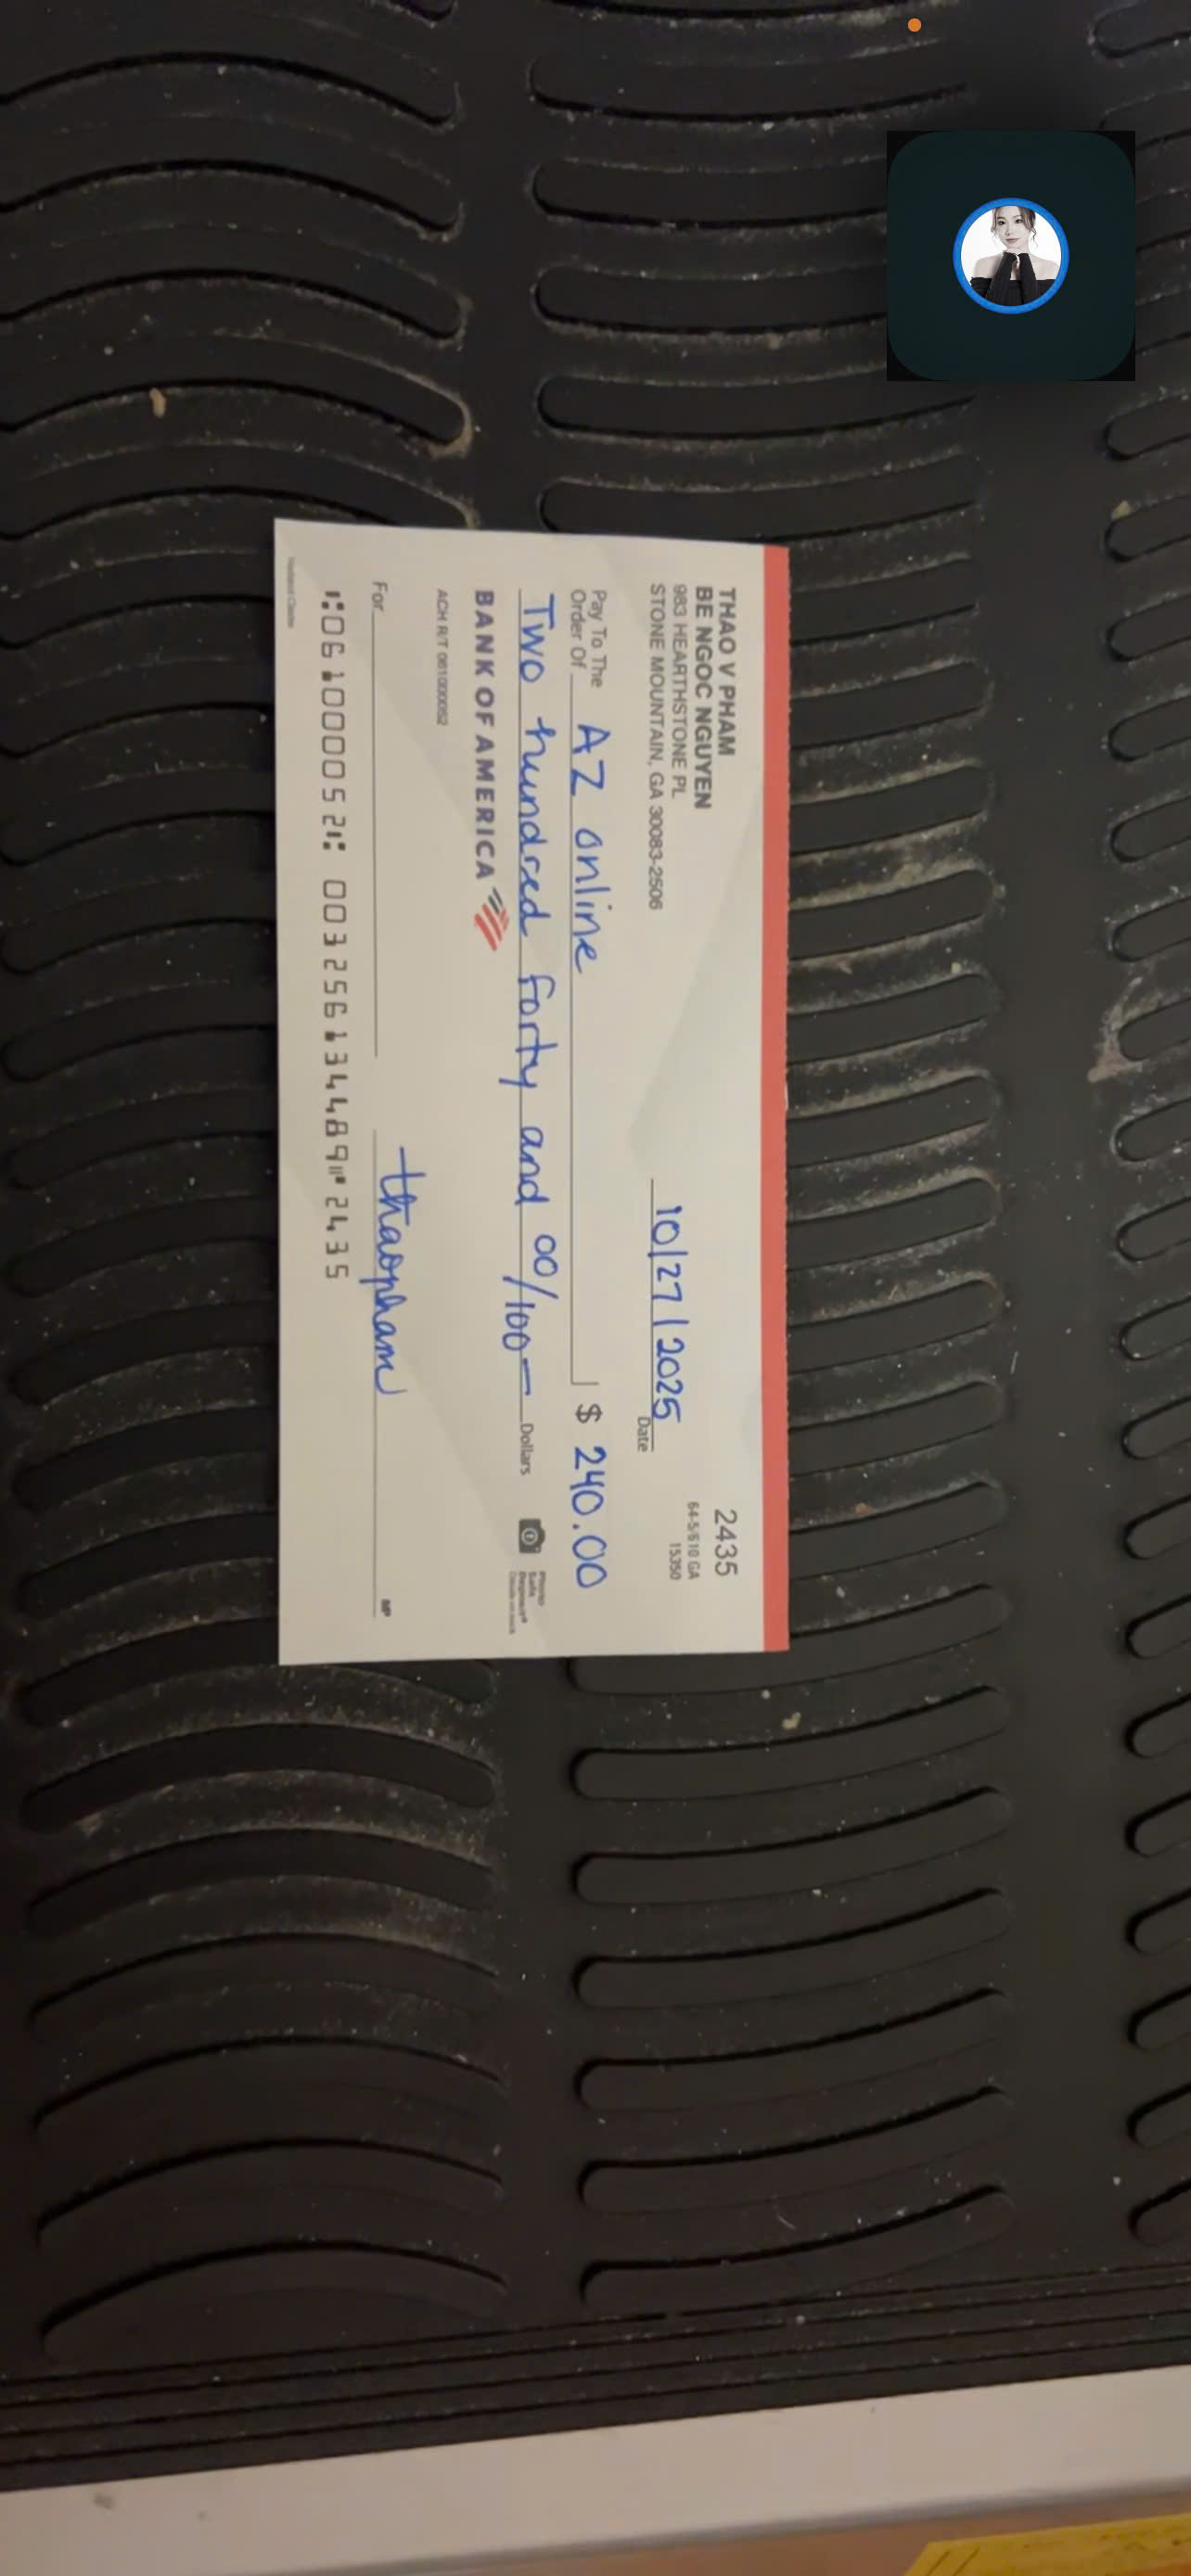 THAO V PHAM
BE NGOC NGUYEN
983 HEARTHSTONE PL
STONE MOUNTAIN, GA 30083-2506
2435
64-5/610 GA
15350
10/27/2025
Date
Pay To The
Order Of AZ online $ 240.00
Two hundred forty and 00/100 — Dollars
Photo
Safe
Deposit®
BANK OF AMERICA
ACH R/T 061000052
For thaopham MP
⑆061000052⑆ 003256134489⑈2435